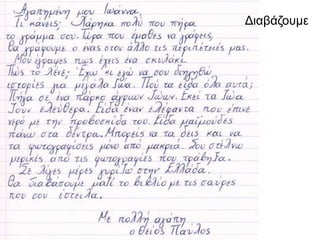 Αγαπημένη μου Ιωάννα,
Τι κάνεις; Χάρηκα πολύ που πήρα
το γράμμα σου. Τώρα που έμαθες να γράφεις,
θα γράφουμε ο ένας στον άλλο τις περιπέτειές μας.
Μου έγραψες πως έχεις ένα σκυλάκι.
Πώς το λένε; Έχω κι εγώ να σου διηγηθώ
ιστορίες για μεγάλα ζώα. Πού τα είδα όλα αυτά;
Πήγα σε ένα πάρκο άγριων ζώων. Εκεί τα ζώα
ζουν ελεύθερα. Είδα έναν ελέφαντα που έπινε
νερό με την προβοσκίδα του. Είδα μαϊμούδες
πάνω στα δέντρα. Μπορείς να τα δεις και να
τα φωτογραφίσεις μόνο από μακριά. Σου στέλνω
μερικές από τις φωτογραφίες που τράβηξα.
Σε λίγες μέρες γυρίζω στην Ελλάδα.
Θα διαβάσουμε μαζί το βιβλίο με τις σαύρες
που σου έστειλα.
Με πολλή αγάπη
ο θείος Παύλος
Διαβάζουμε